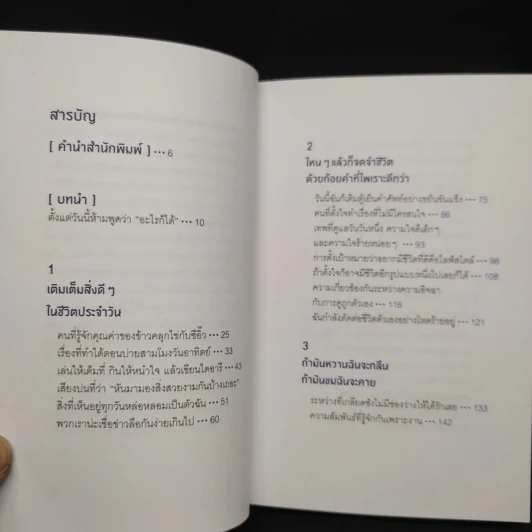 สารบัญ
[ คำนำสำนักพิมพ์ ] ••• 6
[ บทนำ ]
ตั้งแต่วันนี้ห้ามพูดว่า "อะไรก็ได้" ••• 10
1
เติมเต็มสิ่งดี ๆ
ในชีวิตประจำวัน
คนที่รู้จักคุณค่าของข้าวคลุกไข่กับซีอิ๊ว ••• 25
เรื่องที่ทำได้ตอนบ่ายสามโมงวันอาทิตย์ ••• 33
เล่นให้เต็มที่ กินให้หนำใจ แล้วเขียนไดอารี่ ••• 43
เสียงบ่นที่ว่า "หันมามองสิ่งสวยงามกันบ้างเถอะ"
สิ่งที่เห็นอยู่ทุกวันหล่อหลอมเป็นตัวฉัน ••• 51
พวกเราน่ะเชื่อข่าวลือกันง่ายเกินไป ••• 60
2
ไหน ๆ แล้วก็จดจำชีวิต
ด้วยถ้อยคำที่ไพเราะดีกว่า
วันนี้ฉันก็เติมตู้เย็นคำศัพท์อย่างขยันขันแข็ง ••• 75
คนที่ตั้งใจทำเรื่องที่ไม่มีใครสนใจ ••• 86
เทพที่ดูแลวันวันหนึ่ง ความใจดีเล็กๆ
และความใจร้ายหน่อยๆ ••• 93
การตั้งเป้าหมายว่าอยากมีชีวิตที่ดีคือไลฟ์สไตล์ ••• 98
ถ้าตั้งใจก็อาจมีชีวิตอีกรูปแบบหนึ่งไปเลยก็ได้ ••• 108
ความเกี่ยวข้องกันระหว่างความอิจฉา
กับการดูถูกตัวเอง ••• 116
ฉันกำลังตัดต่อชีวิตตัวเองอย่างโหดร้ายอยู่ ••• 121
3
ถ้ามันหวานฉันจะกลืน
ถ้ามันขมฉันจะคาย
ระหว่างที่เกลียดชังไม่มีช่องว่างให้ได้รักเลย ••• 133
ความสัมพันธ์ที่รู้จักกันเพราะงาน ••• 142